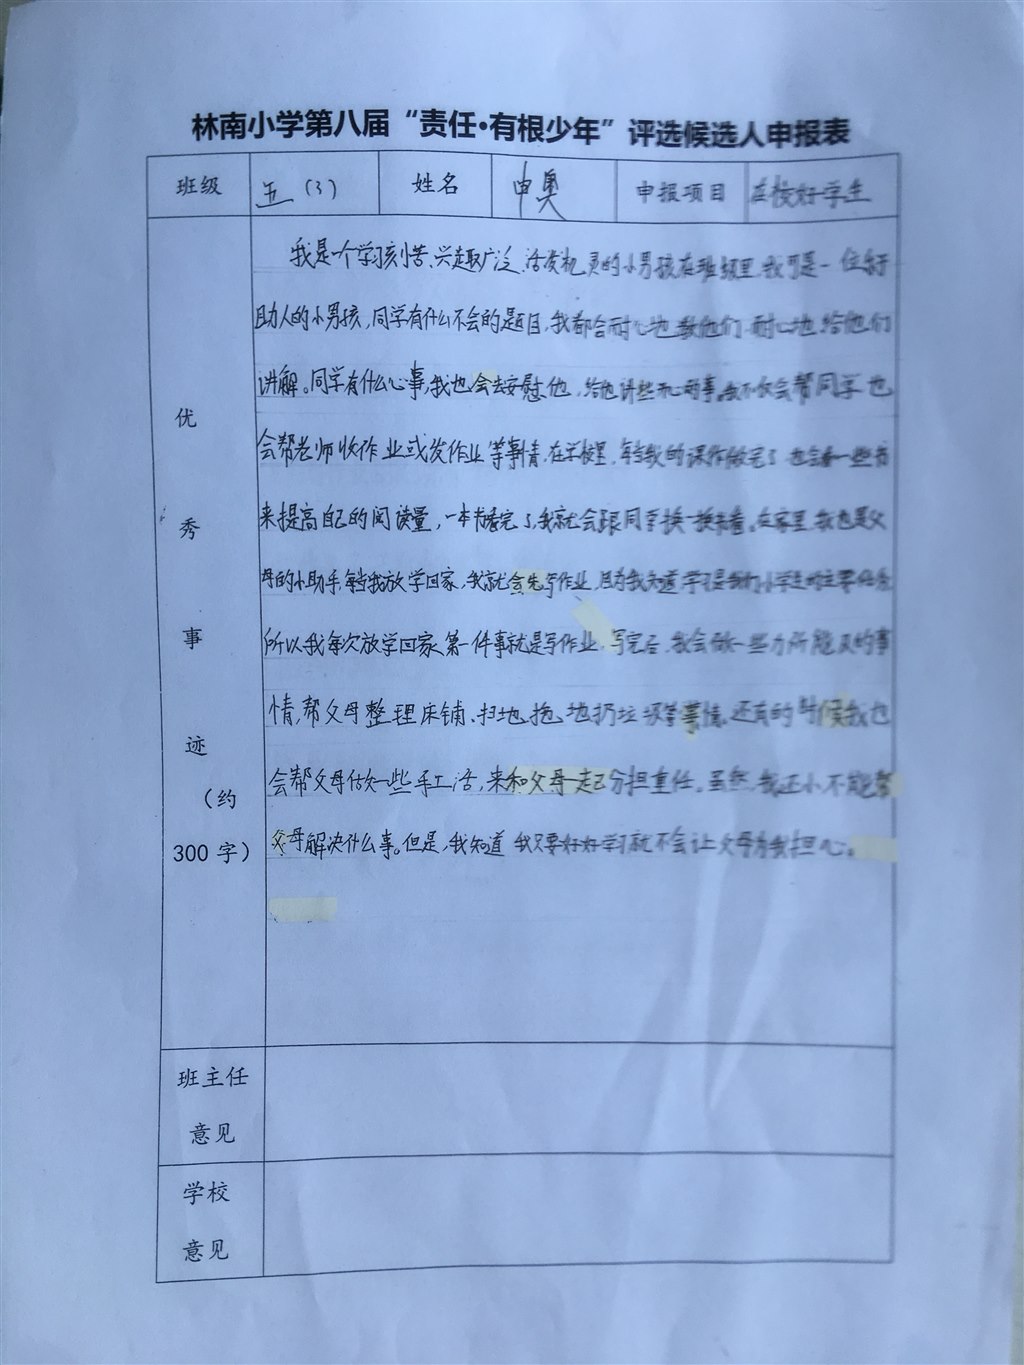 林南小学第八届“责任·有根少年”评选候选人申报表
班级 五（3） 姓名 申奥 申报项目 在校好学生
优秀事迹（约300字）
我是一个学习刻苦、兴趣广泛、活发机灵的小男孩在班级里，我可是一位乐于
助人的小男孩，同学有什么不会的题目，我都会耐心地教他们，耐心地给他们
讲解。同学有什么心事，我也会去安慰他，给他讲些开心的事。我不仅会帮同学也
会帮老师收作业或发作业等事情，在学校里，每当我的课作做完了也会看一些书
来提高自己的阅读量，一本书看完了，我就会跟同学换一换来看。在家里，我也是父
母的小助手，每当我放学回家，我就会先写作业，因为我知道学习是我们小学生的主要任务
所以我每次放学回家第一件事就是写作业，写完后，我会做一些力所能及的事
情，帮父母整理床铺、扫地、拖地扔垃圾等事情。还有的时候我也
会帮父母做一些手工活，来和父母一起分担重任。虽然，我还小不能帮
父母解决什么事。但是，我知道我只要好好学习就不会让父母为我担心。
班主任意见
学校意见